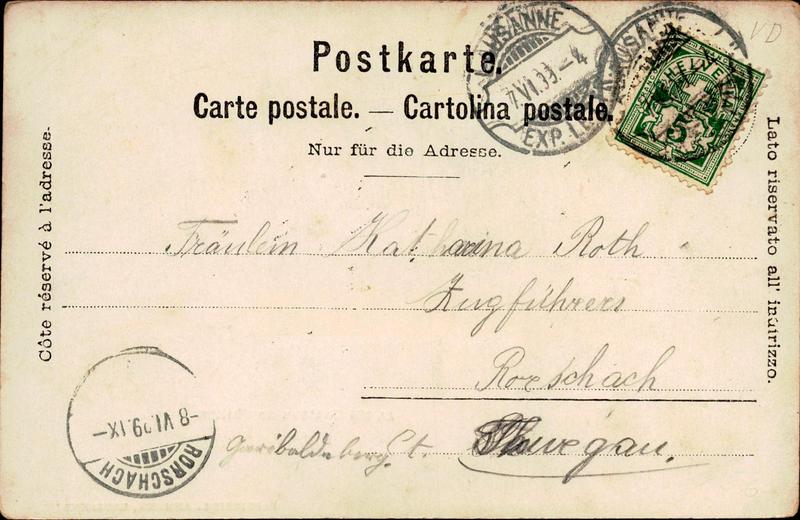 Postkarte.
Carte postale. — Cartolina postale.
Nur für die Adresse.
Côte réservé à l'adresse.
Lato riservato all' indirizzo.
VD
LAUSANNE
7.VI.99.-4
EXP. LETTR.
LAUSANNE
HELVETIA
5
Fräulein Katharina Roth
Zugführers
Rorschach
St. Thurgau.
-8.VI.99.IX-
RORSCHACH